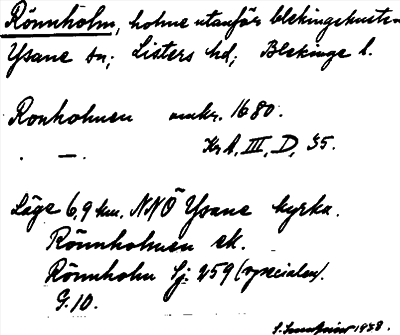 Rönnholm, holme utanför blekingekusten
Ysane sn; Listers hd; Blekinge l.
Ronholmen omkr. 1680.
. — . Kr A, III, D, 35.
Läge 6,9 km. NNÖ Ysane kyrka.
Rönnholmen ek.
Rönnholm Sj. 259 (specialen).
G. 10.
1938.